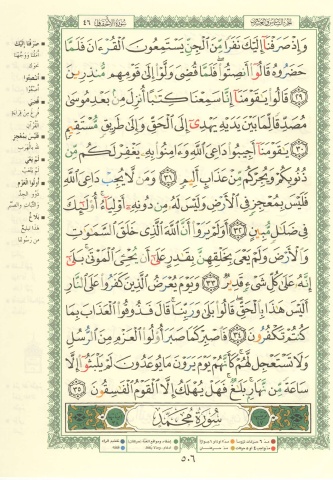 سُورَةُ الأَحْقَافِ ٤٦
وَإِذْ صَرَفْنَا إِلَيْكَ نَفَرًا مِّنَ الْجِنِّ يَسْتَمِعُونَ الْقُرْءَانَ فَلَمَّا
حَضَرُوهُ قَالُوا أَنصِتُوا فَلَمَّا قُضِيَ وَلَّوْا إِلَى قَوْمِهِم مُّنذِرِينَ
٢٩ قَالُوا يَقَوْمَنَا إِنَّا سَمِعْنَا كِتَبًا أُنزِلَ مِن بَعْدِ مُوسَى
مُصَدِّقًا لِّمَا بَيْنَ يَدَيْهِ يَهْدِي إِلَى الْحَقِّ وَإِلَى طَرِيقٍ مُّسْتَقِيمٍ
٣٠ يَقَوْمَنَا أَجِيبُوا دَاعِيَ اللَّهِ وَءَامِنُوا بِهِ يَغْفِرْ لَكُم مِّن
ذُنُوبِكُمْ وَيُجِرْكُم مِّنْ عَذَابٍ أَلِيمٍ ٣١ وَمَن لَّا يُجِبْ دَاعِيَ اللَّهِ
فَلَيْسَ بِمُعْجِزٍ فِي الْأَرْضِ وَلَيْسَ لَهُ مِن دُونِهِ أَوْلِيَاءُ أُولَئِكَ
فِي ضَلَلٍ مُّبِينٍ ٣٢ أَوَلَمْ يَرَوْا أَنَّ اللَّهَ الَّذِي خَلَقَ السَّمَوَتِ
وَالْأَرْضَ وَلَمْ يَعْيَ بِخَلْقِهِنَّ بِقَدِرٍ عَلَى أَن يُحْـِيَ الْمَوْتَى بَلَى
إِنَّهُ عَلَى كُلِّ شَيْءٍ قَدِيرٌ ٣٣ وَيَوْمَ يُعْرَضُ الَّذِينَ كَفَرُوا عَلَى النَّارِ
أَلَيْسَ هَذَا بِالْحَقِّ قَالُوا بَلَى وَرَبِّنَا قَالَ فَذُوقُوا الْعَذَابَ بِمَا
كُنتُمْ تَكْفُرُونَ ٣٤ فَاصْبِرْ كَمَا صَبَرَ أُولُوا الْعَزْمِ مِنَ الرُّسُلِ
وَلَا تَسْتَعْجِل لَّهُمْ كَأَنَّهُمْ يَوْمَ يَرَوْنَ مَا يُوعَدُونَ لَمْ يَلْبَثُوا إِلَّا
سَاعَةً مِّن نَّهَارٍ بَلَغٌ فَهَلْ يُهْلَكُ إِلَّا الْقَوْمُ الْفَسِقُونَ ٣٥
سُورَةُ مُحَمَّدٍ
٥٠٦
صَرَفْنَا إِلَيْكَ
أَنصِتُوا
قُضِيَ
أُولُوا الْعَزْمِ
بَلَاغٌ